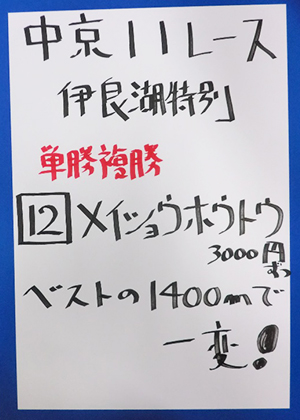 中京11レース
伊良湖特別
単勝複勝
12メイショウホウトウ
3000円ずつ
ベストの1400mで
一変!